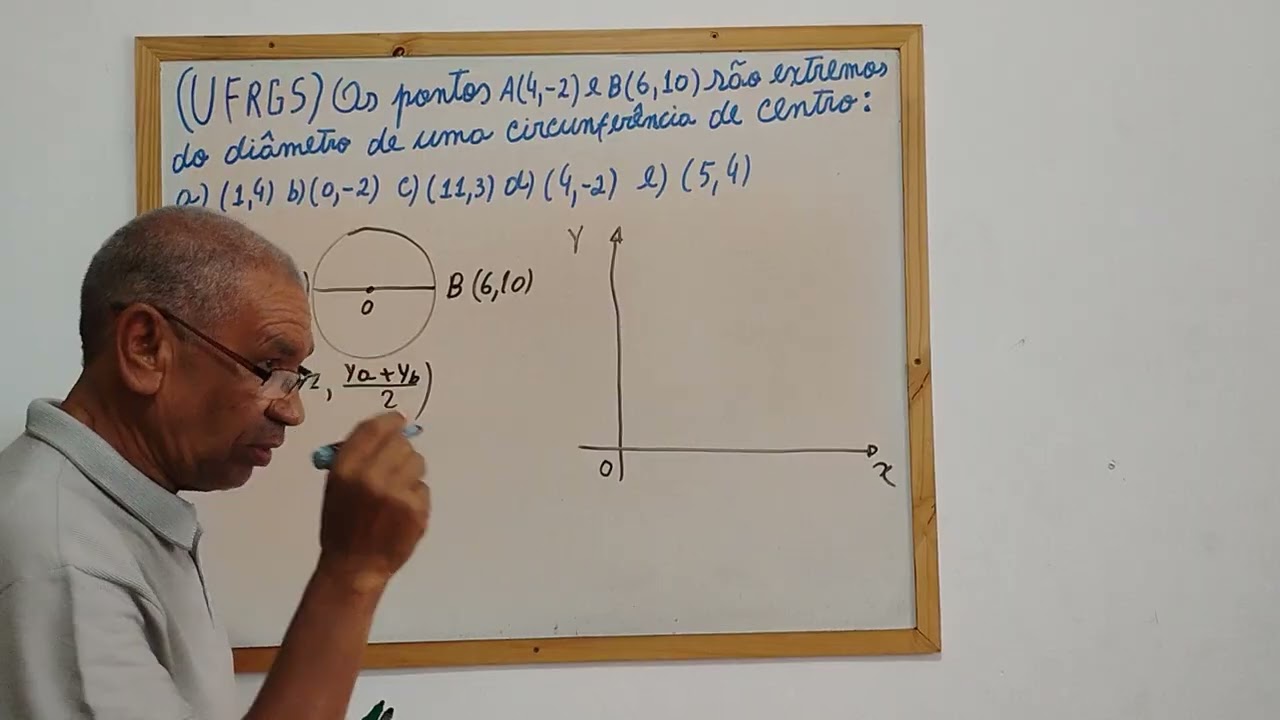 (UFRGS) Os pontos A(4,-2) e B(6,10) são extremos
do diâmetro de uma circunferência de centro:
a) (1,4) b) (0,-2) c) (11,3) d) (4,-2) e) (5,4)
) B (6,10)
O
, ya+yb / 2 )
Y
O
x